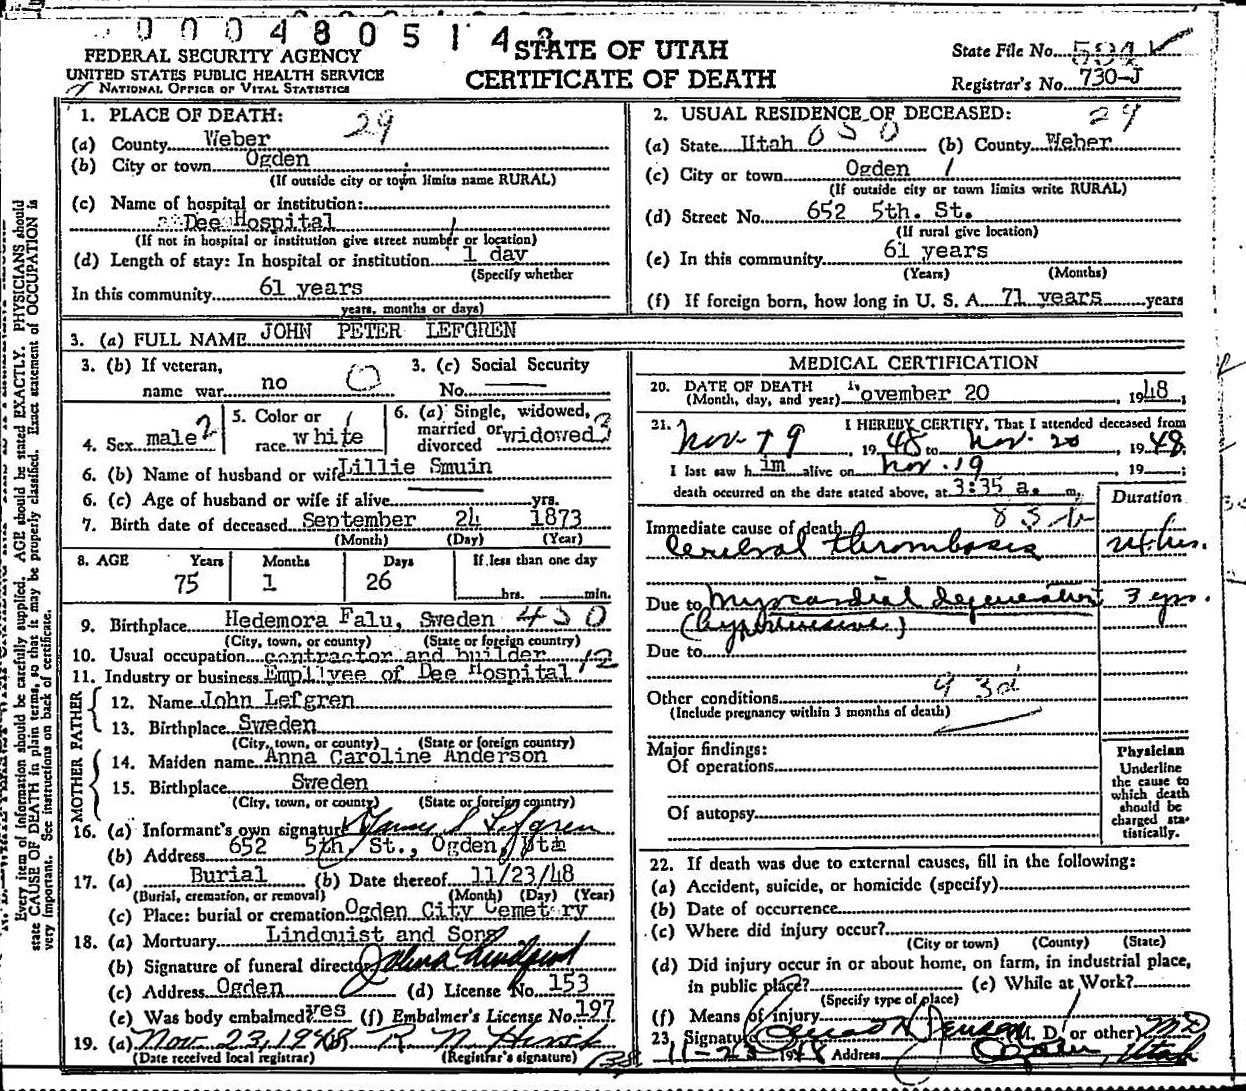 0 0 0 4 8 0 5 1 4
FEDERAL SECURITY AGENCY
UNITED STATES PUBLIC HEALTH SERVICE
NATIONAL OFFICE OF VITAL STATISTICS
STATE OF UTAH
CERTIFICATE OF DEATH
State File No.
Registrar's No. 730-J
1. PLACE OF DEATH: 29
(a) County Weber
(b) City or town Ogden
(If outside city or town limits name RURAL)
(c) Name of hospital or institution:
Dee Hospital
(If not in hospital or institution give street number or location)
(d) Length of stay: In hospital or institution 1 day
(Specify whether
In this community 61 years
years, months or days)
2. USUAL RESIDENCE OF DECEASED: 29
(a) State Utah 050 (b) County Weber
(c) City or town Ogden 1
(If outside city or town limits write RURAL)
(d) Street No. 652 5th. St.
(If rural give location)
(e) In this community 61 years
(Years) (Months)
(f) If foreign born, how long in U. S. A. 71 years years
3. (a) FULL NAME JOHN PETER LEFGREN
3. (b) If veteran,
name war no 0
3. (c) Social Security
No.
4. Sex male 2
5. Color or
race white 1
6. (a) Single, widowed,
married or
divorced widowed 3
6. (b) Name of husband or wife Lillie Smuin
6. (c) Age of husband or wife if alive yrs.
7. Birth date of deceased September 24 1873
(Month) (Day) (Year)
8. AGE Years Months Days If less than one day
75 1 26 hrs. min.
9. Birthplace Hedemora Falu, Sweden 430
(City, town, or county) (State or foreign country)
10. Usual occupation contractor and builder
11. Industry or business Empllyee of Dee Hospital 12
FATHER
12. Name John Lefgren
13. Birthplace Sweden
(City, town, or county) (State or foreign country)
MOTHER
14. Maiden name Anna Caroline Anderson
15. Birthplace Sweden
(City, town, or county) (State or foreign country)
16. (a) Informant's own signature Lefgren
(b) Address 652 5th, St., Ogden, Utah
17. (a) Burial (b) Date thereof 11/23/48
(Burial, cremation, or removal) (Month) (Day) (Year)
(c) Place: burial or cremation Ogden City Cemetery
18. (a) Mortuary Lindquist and Sons
(b) Signature of funeral director Lindquist
(c) Address Ogden (d) License No. 153
(e) Was body embalmed? yes (f) Embalmer's License No. 197
19. (a) Nov. 23, 1948 R. N.
(Date received local registrar) (Registrar's signature)
MEDICAL CERTIFICATION
20. DATE OF DEATH
(Month, day, and year) November 20, 1948;
21. I HEREBY CERTIFY, That I attended deceased from
Nov. 19, 1948 to Nov. 20, 1948
I last saw him alive on Nov. 19 19 ;
death occurred on the date stated above, at 3:35 a. m.
Duration
Immediate cause of death 83b
Cerebral thrombosis 24 hrs.
Due to Myocardial degeneration 3 yrs.
(hypertensive)
Due to
Other conditions 93d
(Include pregnancy within 3 months of death)
Major findings:
Of operations
Of autopsy
Physician
Underline
the cause to
which death
should be
charged sta-
tistically.
22. If death was due to external causes, fill in the following:
(a) Accident, suicide, or homicide (specify)
(b) Date of occurrence
(c) Where did injury occur?
(City or town) (County) (State)
(d) Did injury occur in or about home, on farm, in industrial place,
in public place? (e) While at Work?
(Specify type of place)
(f) Means of injury
23. Signature Jenson (M. D. or other) MD
11-23 1948 Address Ogden, Utah
Every item of information should be carefully supplied. AGE should be stated EXACTLY. PHYSICIANS should
state CAUSE OF DEATH in plain terms, so that it may be properly classified. Exact statement of OCCUPATION is
very important. See instructions on back of certificate.